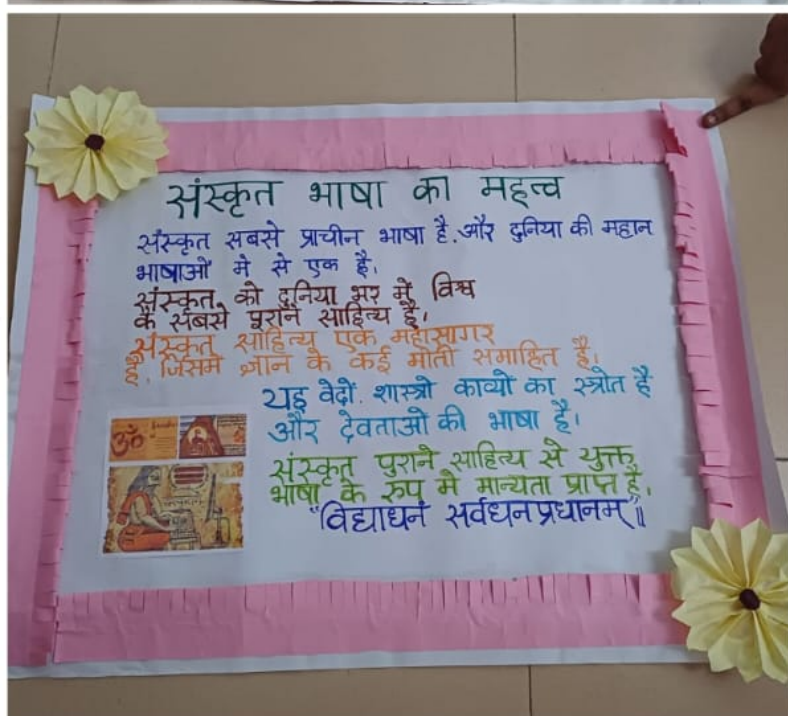 संस्कृत भाषा का महत्व
संस्कृत सबसे प्राचीन भाषा है. और दुनिया की महान
भाषाओं मे से एक है।
संस्कृत को दुनिया भर मे विश्व
के सबसे पुराने साहित्य है।
संस्कृत साहित्य एक महासागर
है, जिसमे ज्ञान के कई मोती समाहित है।
यह वेदो. शास्त्रो काव्यो का स्त्रोत है
और देवताओ की भाषा है।
संस्कृत पुराने साहित्य से युक्त
भाषा के रुप मे मान्यता प्राप्त है.
"विद्याधनं सर्वधनप्रधानम्"॥
ॐ